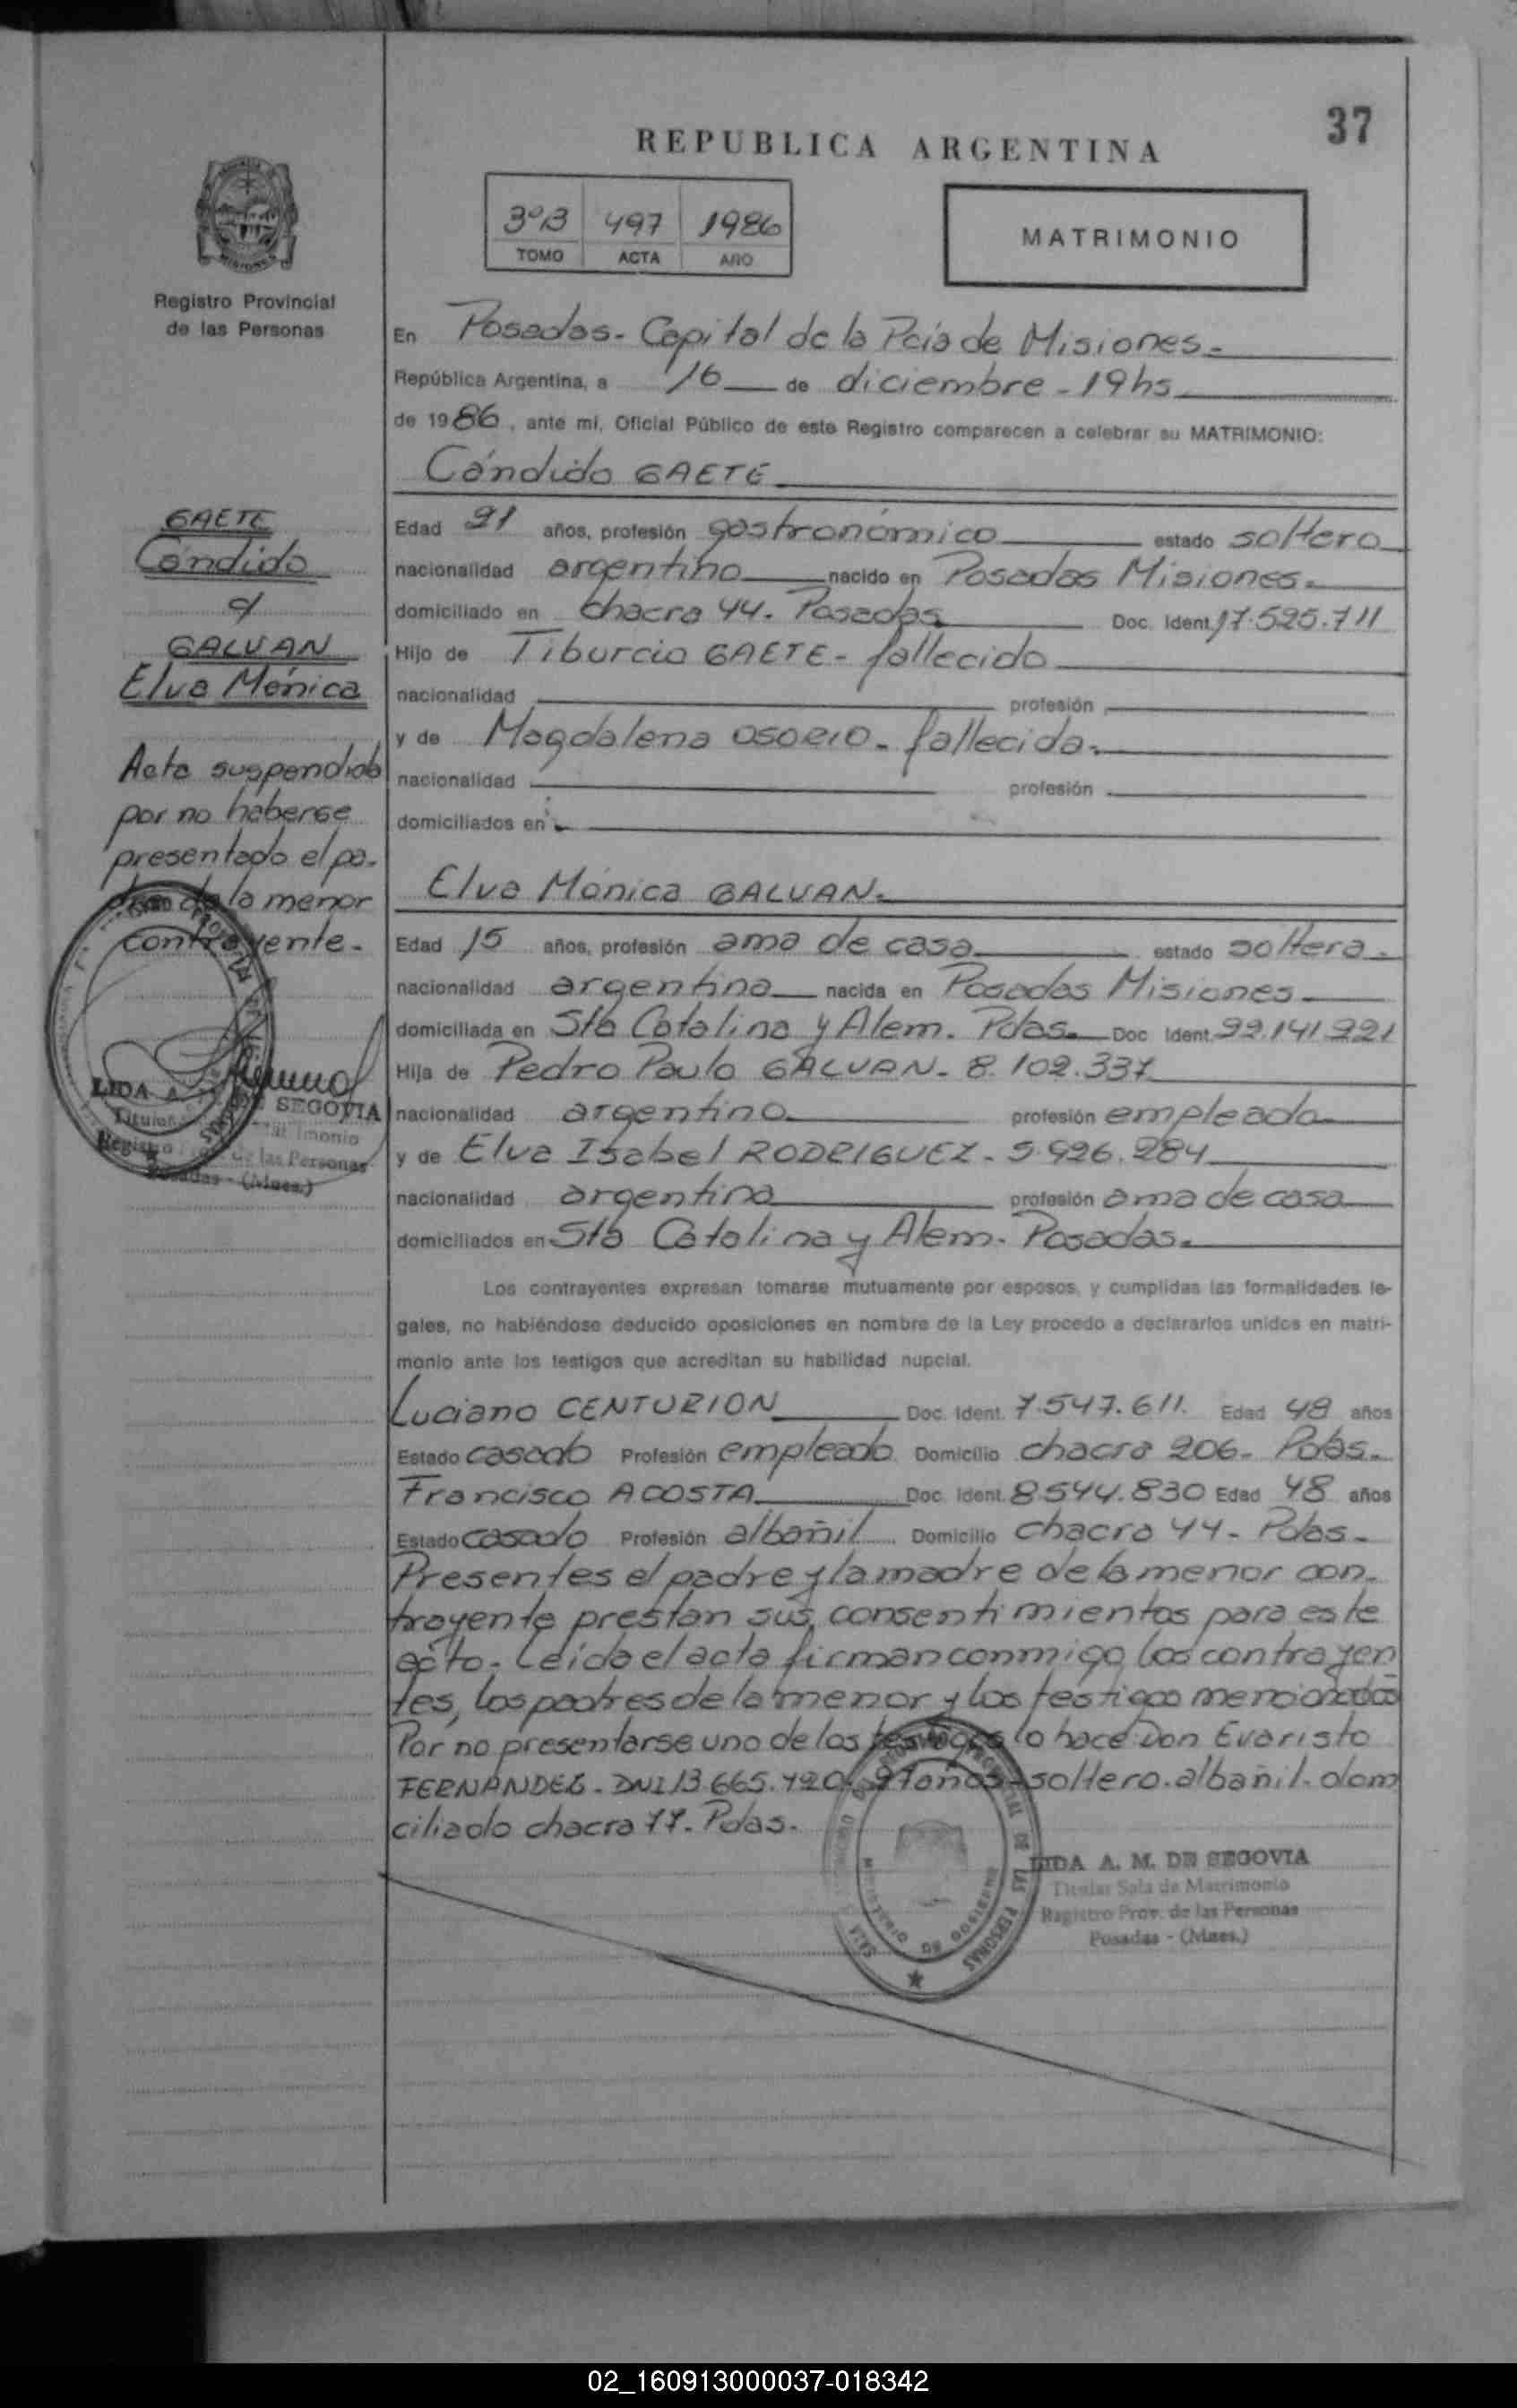 37
REPUBLICA ARGENTINA
3ºB 497 1986
TOMO ACTA AÑO
MATRIMONIO
Registro Provincial
de las Personas
En Posadas - Capital de la Pcia de Misiones.-
República Argentina, a 16 de diciembre - 19 hs
de 1986, ante mí, Oficial Público de este Registro comparecen a celebrar su MATRIMONIO:
Cándido GAETE
Edad 21 años, profesión gastronómico estado soltero
nacionalidad argentino nacido en Posadas Misiones.
domiciliado en chacra 44. Posadas Doc. Ident. 17.525.711
Hijo de Tiburcio GAETE - fallecido
nacionalidad profesión
y de Magdalena OSORIO - fallecida.
nacionalidad profesión
domiciliados en
GAETE
Cándido
c/
GALVAN
Elva Mónica
Acta suspendida
por no haberse
presentado el pa-
dre de la menor
contrayente.-
LIDA A. SEGOVIA
Titular
Registro de las Personas
Posadas - (Mnes.)
Elva Mónica GALVAN.
Edad 15 años, profesión ama de casa estado soltera.
nacionalidad argentina nacida en Posadas Misiones
domiciliada en Sta Catalina y Alem. Pdas. Doc. Ident. 22.141.221
Hija de Pedro Paulo GALVAN - 8.102.337
nacionalidad argentino profesión empleado
y de Elva Isabel RODRIGUEZ - 5.926.284
nacionalidad argentina profesión ama de casa
domiciliados en Sta Catalina y Alem. Posadas.
Los contrayentes expresan tomarse mutuamente por esposos, y cumplidas las formalidades le-
gales, no habiéndose deducido oposiciones en nombre de la Ley procedo a declararlos unidos en matri-
monio ante los testigos que acreditan su habilidad nupcial.
Luciano CENTURION Doc. Ident. 7.547.611. Edad 48 años
Estado casado Profesión empleado Domicilio chacra 206 - Pdas.
Francisco ACOSTA Doc. Ident. 8.544.830 Edad 48 años
Estado casado Profesión albañil Domicilio chacra 44 - Pdas.
Presentes el padre y la madre de la menor con-
trayente prestan sus consentimientos para este
acto. Leída el acta firman conmigo los contrayen
tes, los padres de la menor y los testigos mencionados
Por no presentarse uno de los testigos lo hace Don Evaristo
FERNANDEZ - DNI 13.665.420. 27 años - soltero. albañil. domi
ciliado chacra 77. Pdas.
LIDA A. M. DE SEGOVIA
Titular Sala de Matrimonio
Registro Prov. de las Personas
Posadas - (Mnes.)
02_160913000037-018342